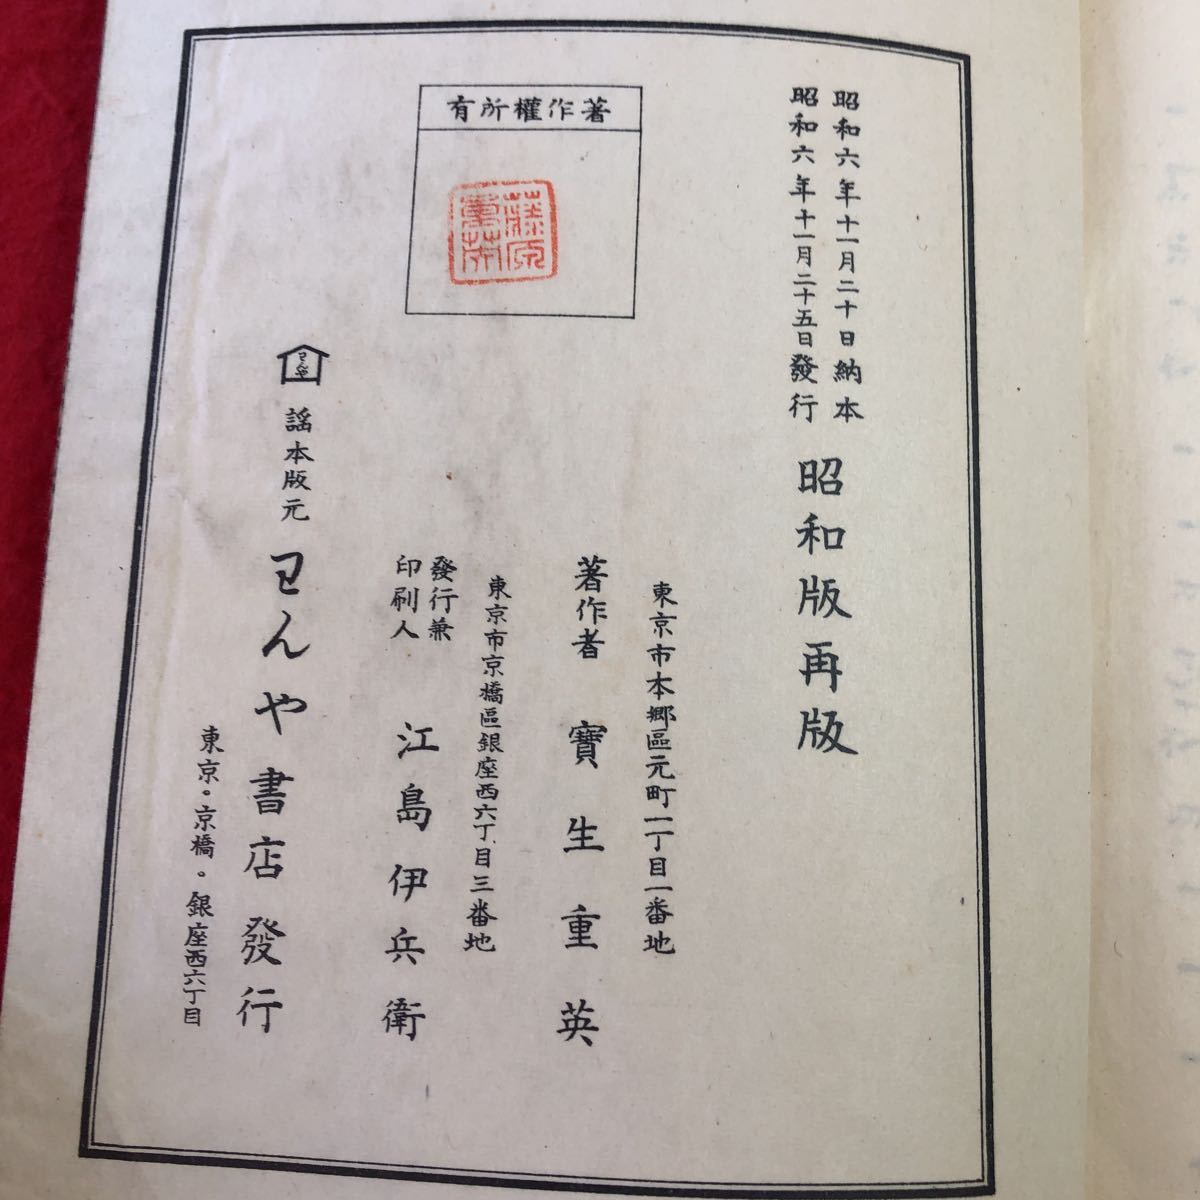 昭和六年十一月二十日納本
昭和六年十一月二十五日發行
昭和版再版
有所權作著
藤原
重英
東京市本郷區元町一丁目一番地
著作者 寶生重英
東京市京橋區銀座西六丁目三番地
發行兼
印刷人
江島伊兵衛
謡本版元
わんや書店發行
東京。京橋。銀座西六丁目